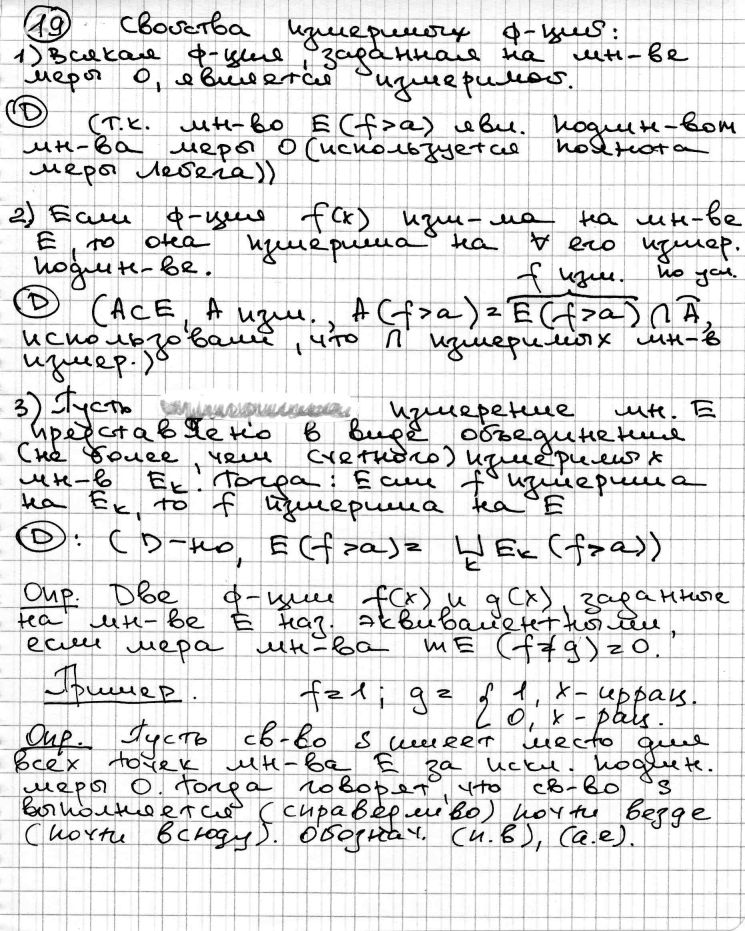 19 Свойства измеримых ф-ций:
1) Всякая ф-ция, заданная на мн-ве
меры 0, является измеримой.
D
(т.к. мн-во E(f>a) явл. подмн-вом
мн-ва меры 0 (используется полнота
меры Лебега))
2) Если ф-ция f(x) изм-ма на мн-ве
E, то она измерима на ∀ его измер.
подмн-ве.
f изм. по усл.
D (A⊂E, A изм., A(f>a)=E(f>a)∩A,
использовали, что ∩ измеримых мн-в
измер.)
3) Пусть измерение мн. E
представлено в виде объединения
(не более, чем счетного) измеримых
мн-в Eₖ. Тогда: Если f измерима
на Eₖ, то f измерима на E
D: (D-но, E(f>a)= ⊔ₖ Eₖ(f>a))
Опр. Две ф-ции f(x) и g(x), заданные
на мн-ве E наз. эквивалентными,
если мера мн-ва mE (f≠g)=0.
Пример. f=1; g= { 1, x-иррац.
0, x-рац.
Опр. Пусть св-во S имеет место для
всех точек мн-ва E за искл. подмн.
меры 0. Тогда говорят, что св-во S
выполняется (справедливо) почти везде
(почти всюду). Обознач. (п.в), (a.e).